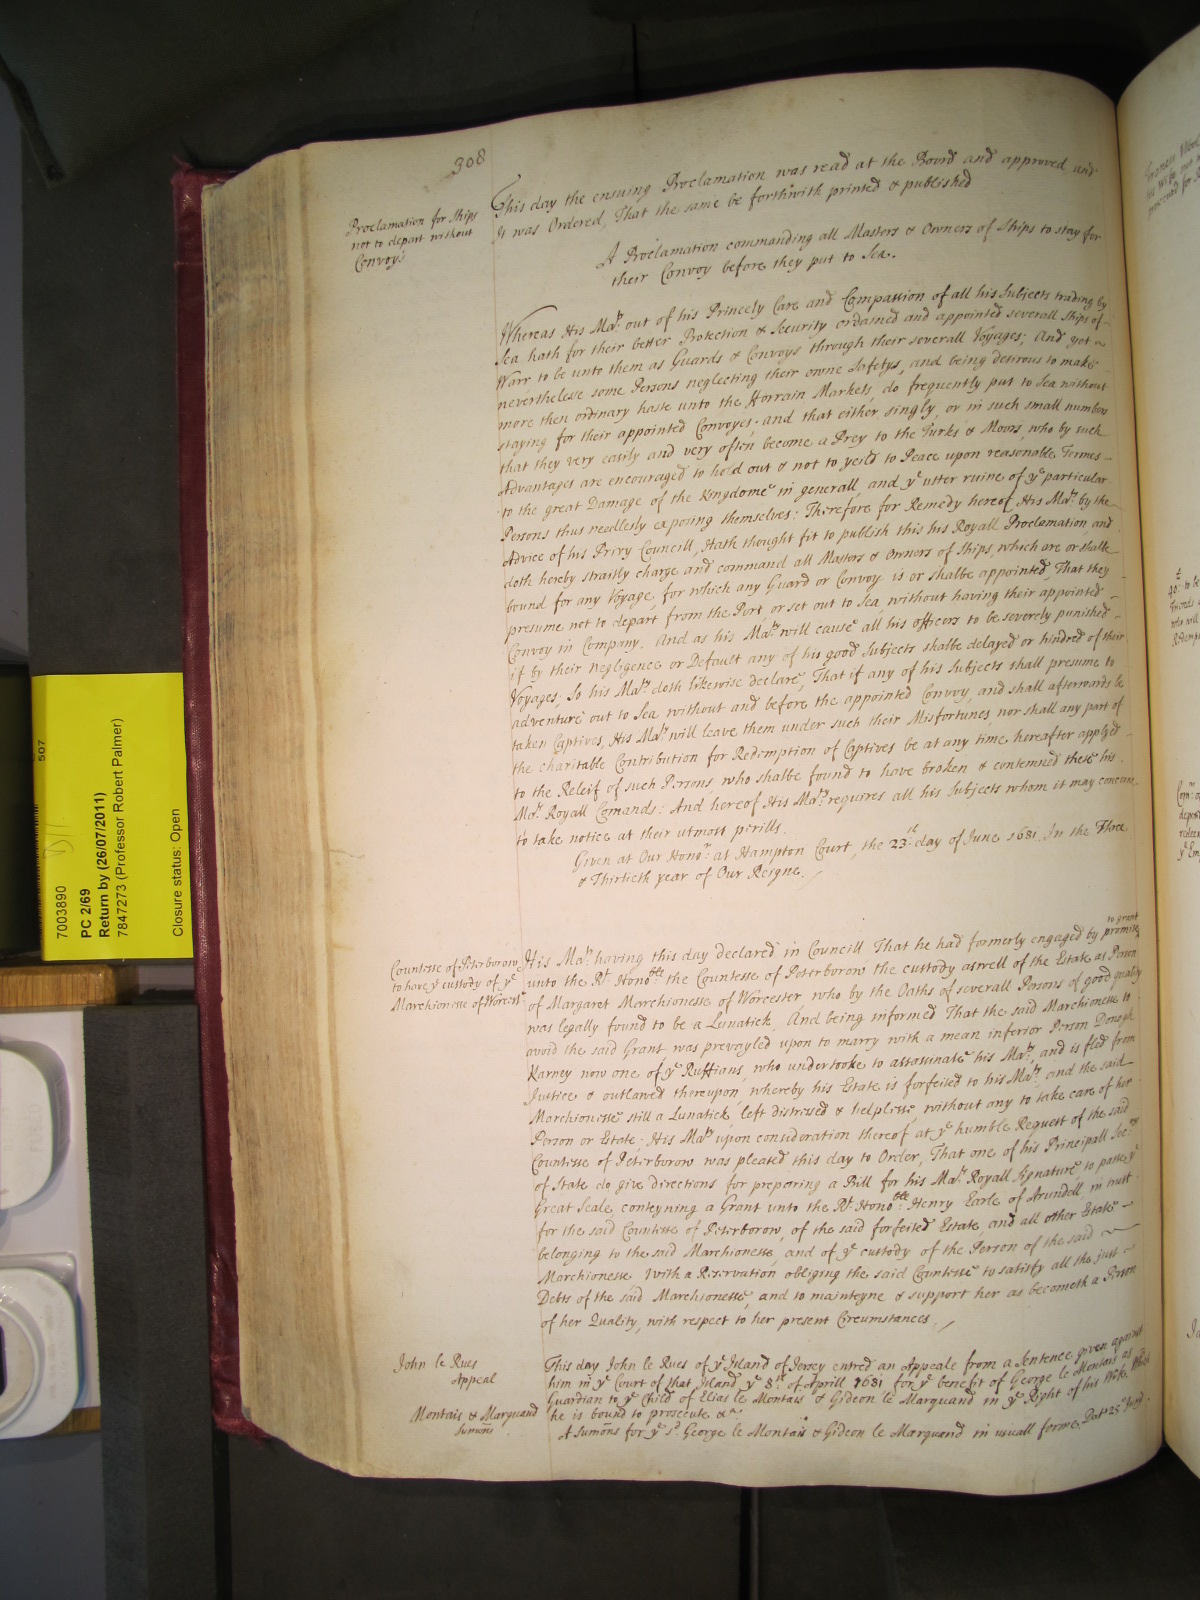 308
Proclamation for Ships
not to depart without
Convoy.
This day the ensuing Proclamation was read at the Board and approved and
It was Ordered, That the same be forthwith printed & published
A Proclamation commanding all Masters & Owners of Ships to stay for
their Convoy before they put to Sea.
Whereas His Maty. out of his Princely Care and Compassion of all his Subjects trading by
Sea hath for their better Protection & Security ordained and appointed severall Ships of
Warr to be unto them as Guards & Convoys through their severall Voyages; And yet
neverthelesse some Persons neglecting their owne Safetys, and being desirous to make
more then ordinary haste unto the Forrain Markets, do frequently put to Sea without
staying for their appointed Convoyes; and that either singly, or in such small numbers
that they very easily and very often become a Prey to the Turks & Moors, who by such
Advantages are encouraged to hold out & not to yeild to Peace upon reasonable Termes
to the great Damage of the Kingdome in generall, and ye utter ruine of ye particular
Persons thus needlesly exposing themselves: Therefore for Remedy hereof His Maty. by the
Advice of his Privy Councill, Hath thought fit to publish this his Royall Proclamation, and
doth hereby straitly charge and command all Masters & Owners of Ships, which are or shalbe
bound for any Voyage, for which any Guard or Convoy is or shalbe appointed, That they
presume not to depart from the Port, or set out to Sea, without having their appointed
Convoy in Company. And as his Maty. will cause all his officers to be severely punished
if by their negligence or Default any of his good Subjects shalbe delayed or hindred of their
Voyages; So his Maty. doth likewise declare, That if any of his Subjects shall presume to
adventure out to Sea, without and before the appointed Convoy, and shall afterwards be
taken Captives, His Maty. will leave them under such their Misfortunes, nor shall any part of
the charitable Contribution for Redemption of Captives be at any time hereafter applyed
to the Releif of such Persons who shalbe found to have broken & contemned these his
Mats. Royall Comands: And hereof His Maty. requires all his Subjects whom it may concerne
to take notice at their utmost perills.
Given at Our Honor. at Hampton Court, the 23d day of June 1681. In the Three
& Thirtieth year of Our Reigne.
Countesse of Peterborow
to have ye custody of ye
Marchionesse of Worcestr
His Maty. having this day declared in Councill That he had formerly engaged by promise to grant
unto the Rt. Honoble the Countesse of Peterborow the custody aswell of the Estate as Person
of Margaret Marchionesse of Worcester, who by the Oaths of severall Persons of good quality
was legally found to be a Lunatick, And being informed That the said Marchionesse to
avoid the said Grant, was prevayled upon to marry with a mean inferior Person Donogh
Karney now one of ye Ruffians, who undertooke to assassinate his Maty, and is fled from
Justice & outlawed thereupon, whereby his Estate is forfeited to his Maty. and the said
Marchionesse still a Lunatick, left distressed & helplesse, without any to take care of her
Person or Estate; His Maty upon consideration thereof, at ye humble Request of the said
Countesse of Peterborow was pleased this day to Order, That one of his Principall Secrys
of State do give directions for preparing a Bill for his Mats. Royall Signature to passe ye
Great Seale, conteyning a Grant unto the Rt. Honoble. Henry Earle of Arundell, in trust
for the said Countesse of Peterborow, of the said forfeited Estate, and all other Estate
belonging to the said Marchionesse, and of ye custody of the Person of the said
Marchionesse With a Reservation obliging the said Countesse to satisfy all the just
Debts of the said Marchionesse, and to mainteyne & support her as becometh a Person
of her Quality, with respect to her present Circumstances.
John le Rues
Appeal
This day John le Rues of ye Island of Jersey entred an Appeale from a Sentence given against
him in ye Court of that Island ye 8th of Aprill 1681 for ye benefit of George le Montais as
Guardian to ye Child of Elias le Montais & Gideon le Marquand in ye Right of his Wife. Which
he is bound to prosecute &c.
Montais & Marquand
sumons
A Sumons for ye sd. George le Montais & Gideon le Marquand in usuall forme. Dat
507
7003890
PC 2/69
Return by (26/07/2011)
7847273 (Professor Robert Palmer)
Closure status: Open